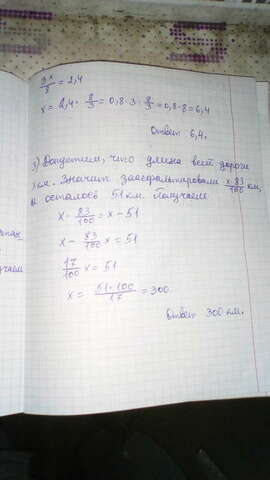 3x/8 = 2,4
x = 2,4 · 8/3 = 0,8 · 3 · 8/3 = 0,8 · 8 = 6,4
Ответ 6,4.
3) Допустим, что длина всей дороги
x км. Значит заасфальтировали x·83/100 км,
и осталось 51 км. Получаем
x · 83/100 = x - 51
x - 83/100 x = 51
17/100 x = 51
x = 51·100/17 = 300.
Ответ 300 км.